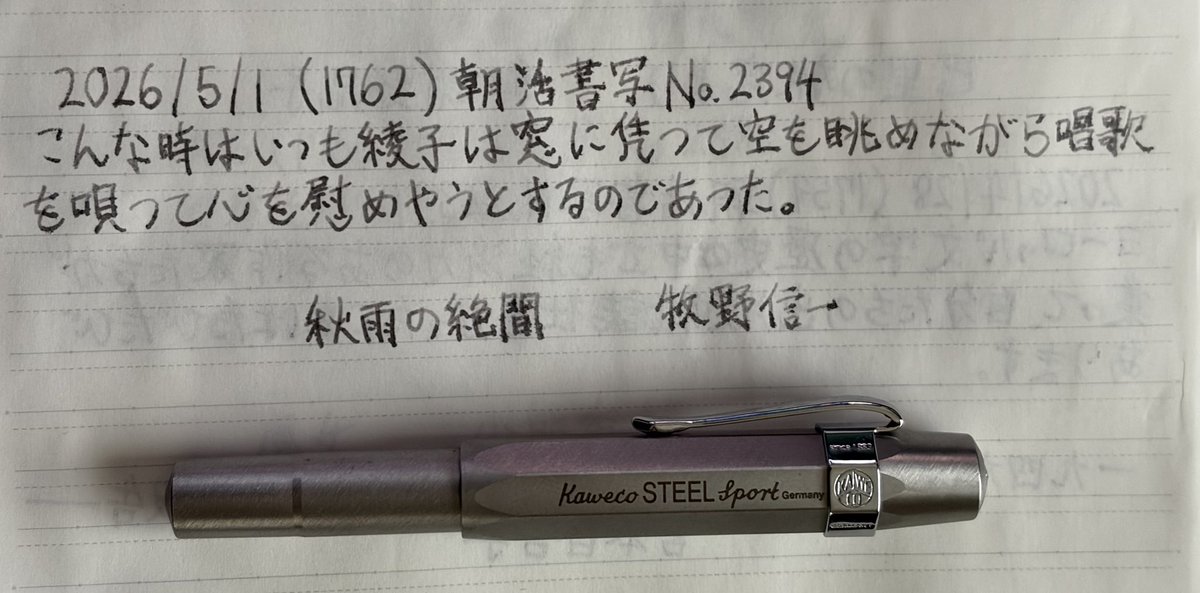 2026/5/1 (1762) 朝活書写 No. 2394
こんな時はいつも綾子は窓に凭つて空を眺めながら唱歌
を唄つて心を慰めやうとするのであつた。
秋雨の絶間 牧野信一
Kaweco STEEL Sport Germany